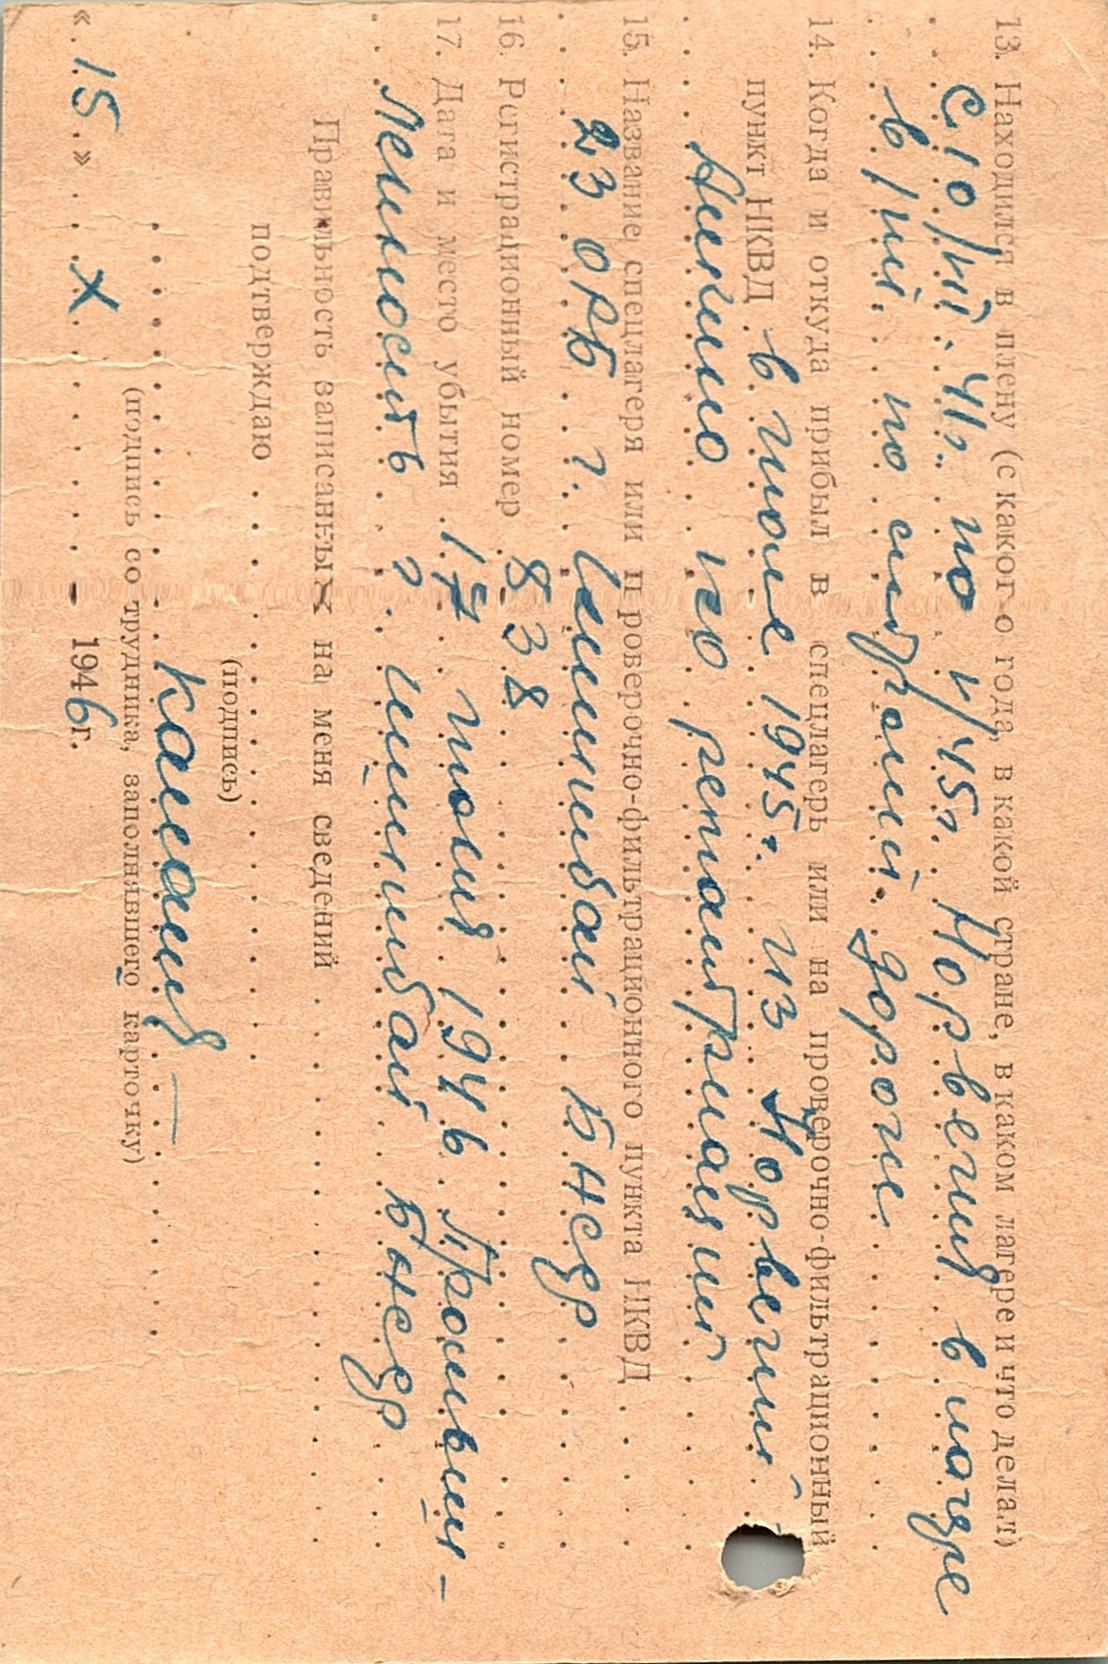 13. Находился в плену (с какого года, в какой стране, в каком лагере и что делал)
с 10/VII. 41г. по V/45г. Норвегия в лагере
в/пл. по стр. дороги
14. Когда и откуда прибыл в спецлагерь или на проверочно-фильтрационный
пункт НКВД в июле 1945г. из Норвегии
по репатриации
15. Название спецлагеря или проверочно-фильтрационного пункта НКВД
23 ОРБ г. Ишимбай БАССР
16. Регистрационный номер 838
17. Дата и место убытия 17 июля 1946
г. Ишимбай БАССР
Правильность записанных на меня сведений
подтверждаю
(подпись)
(подпись сотрудника, заполнявшего карточку)
« 15 » X - 1946г.